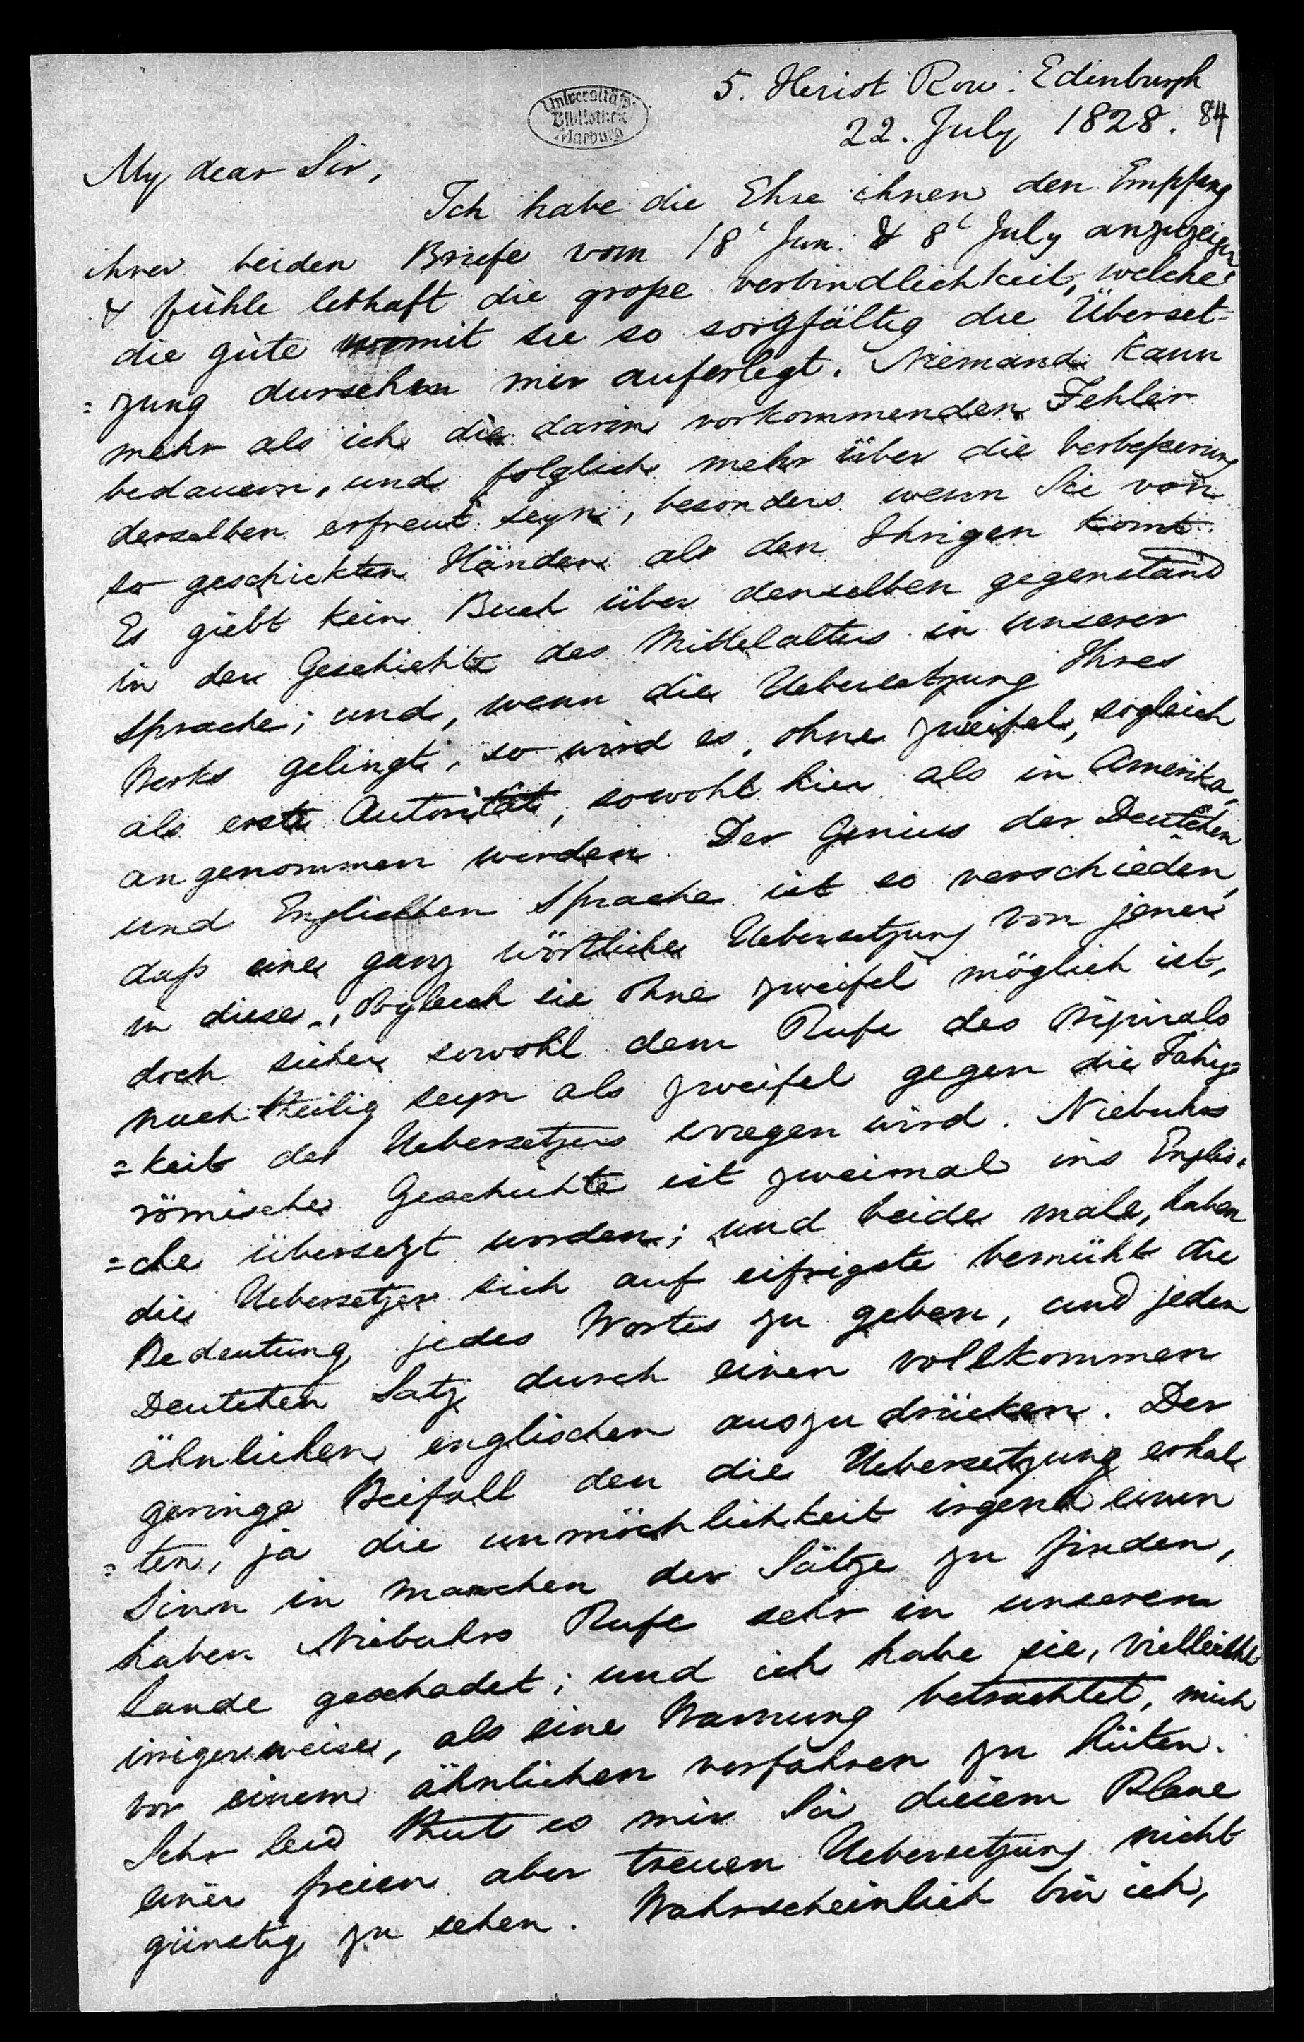 5. Heriot Row. Edinburgh
22. July 1828. 84
Universitäts-
Bibliothek
Marburg
My dear Sir,
Ich habe die Ehre ihnen den Empfang
ihrer beiden Briefe vom 18t Jun. & 8t July anzuzeigen
& fühle lebhaft die große verbindlichkeit, welche
die güte womit sie so sorgfältig die Überset-
=zung dursehen mir auferlegt. Niemand kann
mehr als ich die darin vorkommenden Fehler
bedauern, und folglich mehr über die Verbeßerung
derselben erfreut seyn, besonders wenn Sie von
so geschickten Händen als den Ihrigen komt.
Es giebt kein Buch über denselben gegenstand
in der Geschichte des Mittelalters in unserer
Sprache; und, wenn die Uebersetzung Ihres
Werks gelingt, so wird es, ohne zweifel, sogleich
als erste Autorität, sowohl hier als in Amerika,
angenommen werden. Der Genius der Deutschen
und Englischen Sprache ist so verschieden,
daß eine ganz wörtliche Uebersetzung von jener
in diese, obgleich sie ohne zweifel möglich ist,
doch sicher sowohl dem Rufe des Originals
nachtheilig seyn als zweifel gegen die Fähig-
=keit des Uebersetzers erregen wird. Niebuhrs
römische Geschichte ist zweimal ins Englis-
=che übersezt worden; und beide male, haben
die Uebersetzer sich auf eifrigste bemüht die
Bedeutung jedes Wortes zu geben, und jeden
Deutchen Satz durch einen vollkommen
ähnlichen englischen auszudrücken. Der
geringe Beifall den die Uebersetzung erhal-
=ten, ja die unmöchlichkeit irgend einen
Sinn in manchen der Sätze zu finden,
haben Niebuhrs Rufe sehr in unserem
Lande geschadet; und ich habe sie, vielleicht
irrigerweise, als eine Warnung betrachtet, mich
vor einem ähnlichen verfahren zu hüten.
Sehr leid thut es mir Sie diesem Plane
einer freien aber treuen Uebersetzung nicht
günstig zu sehen. Wahrscheinlich bin ich,